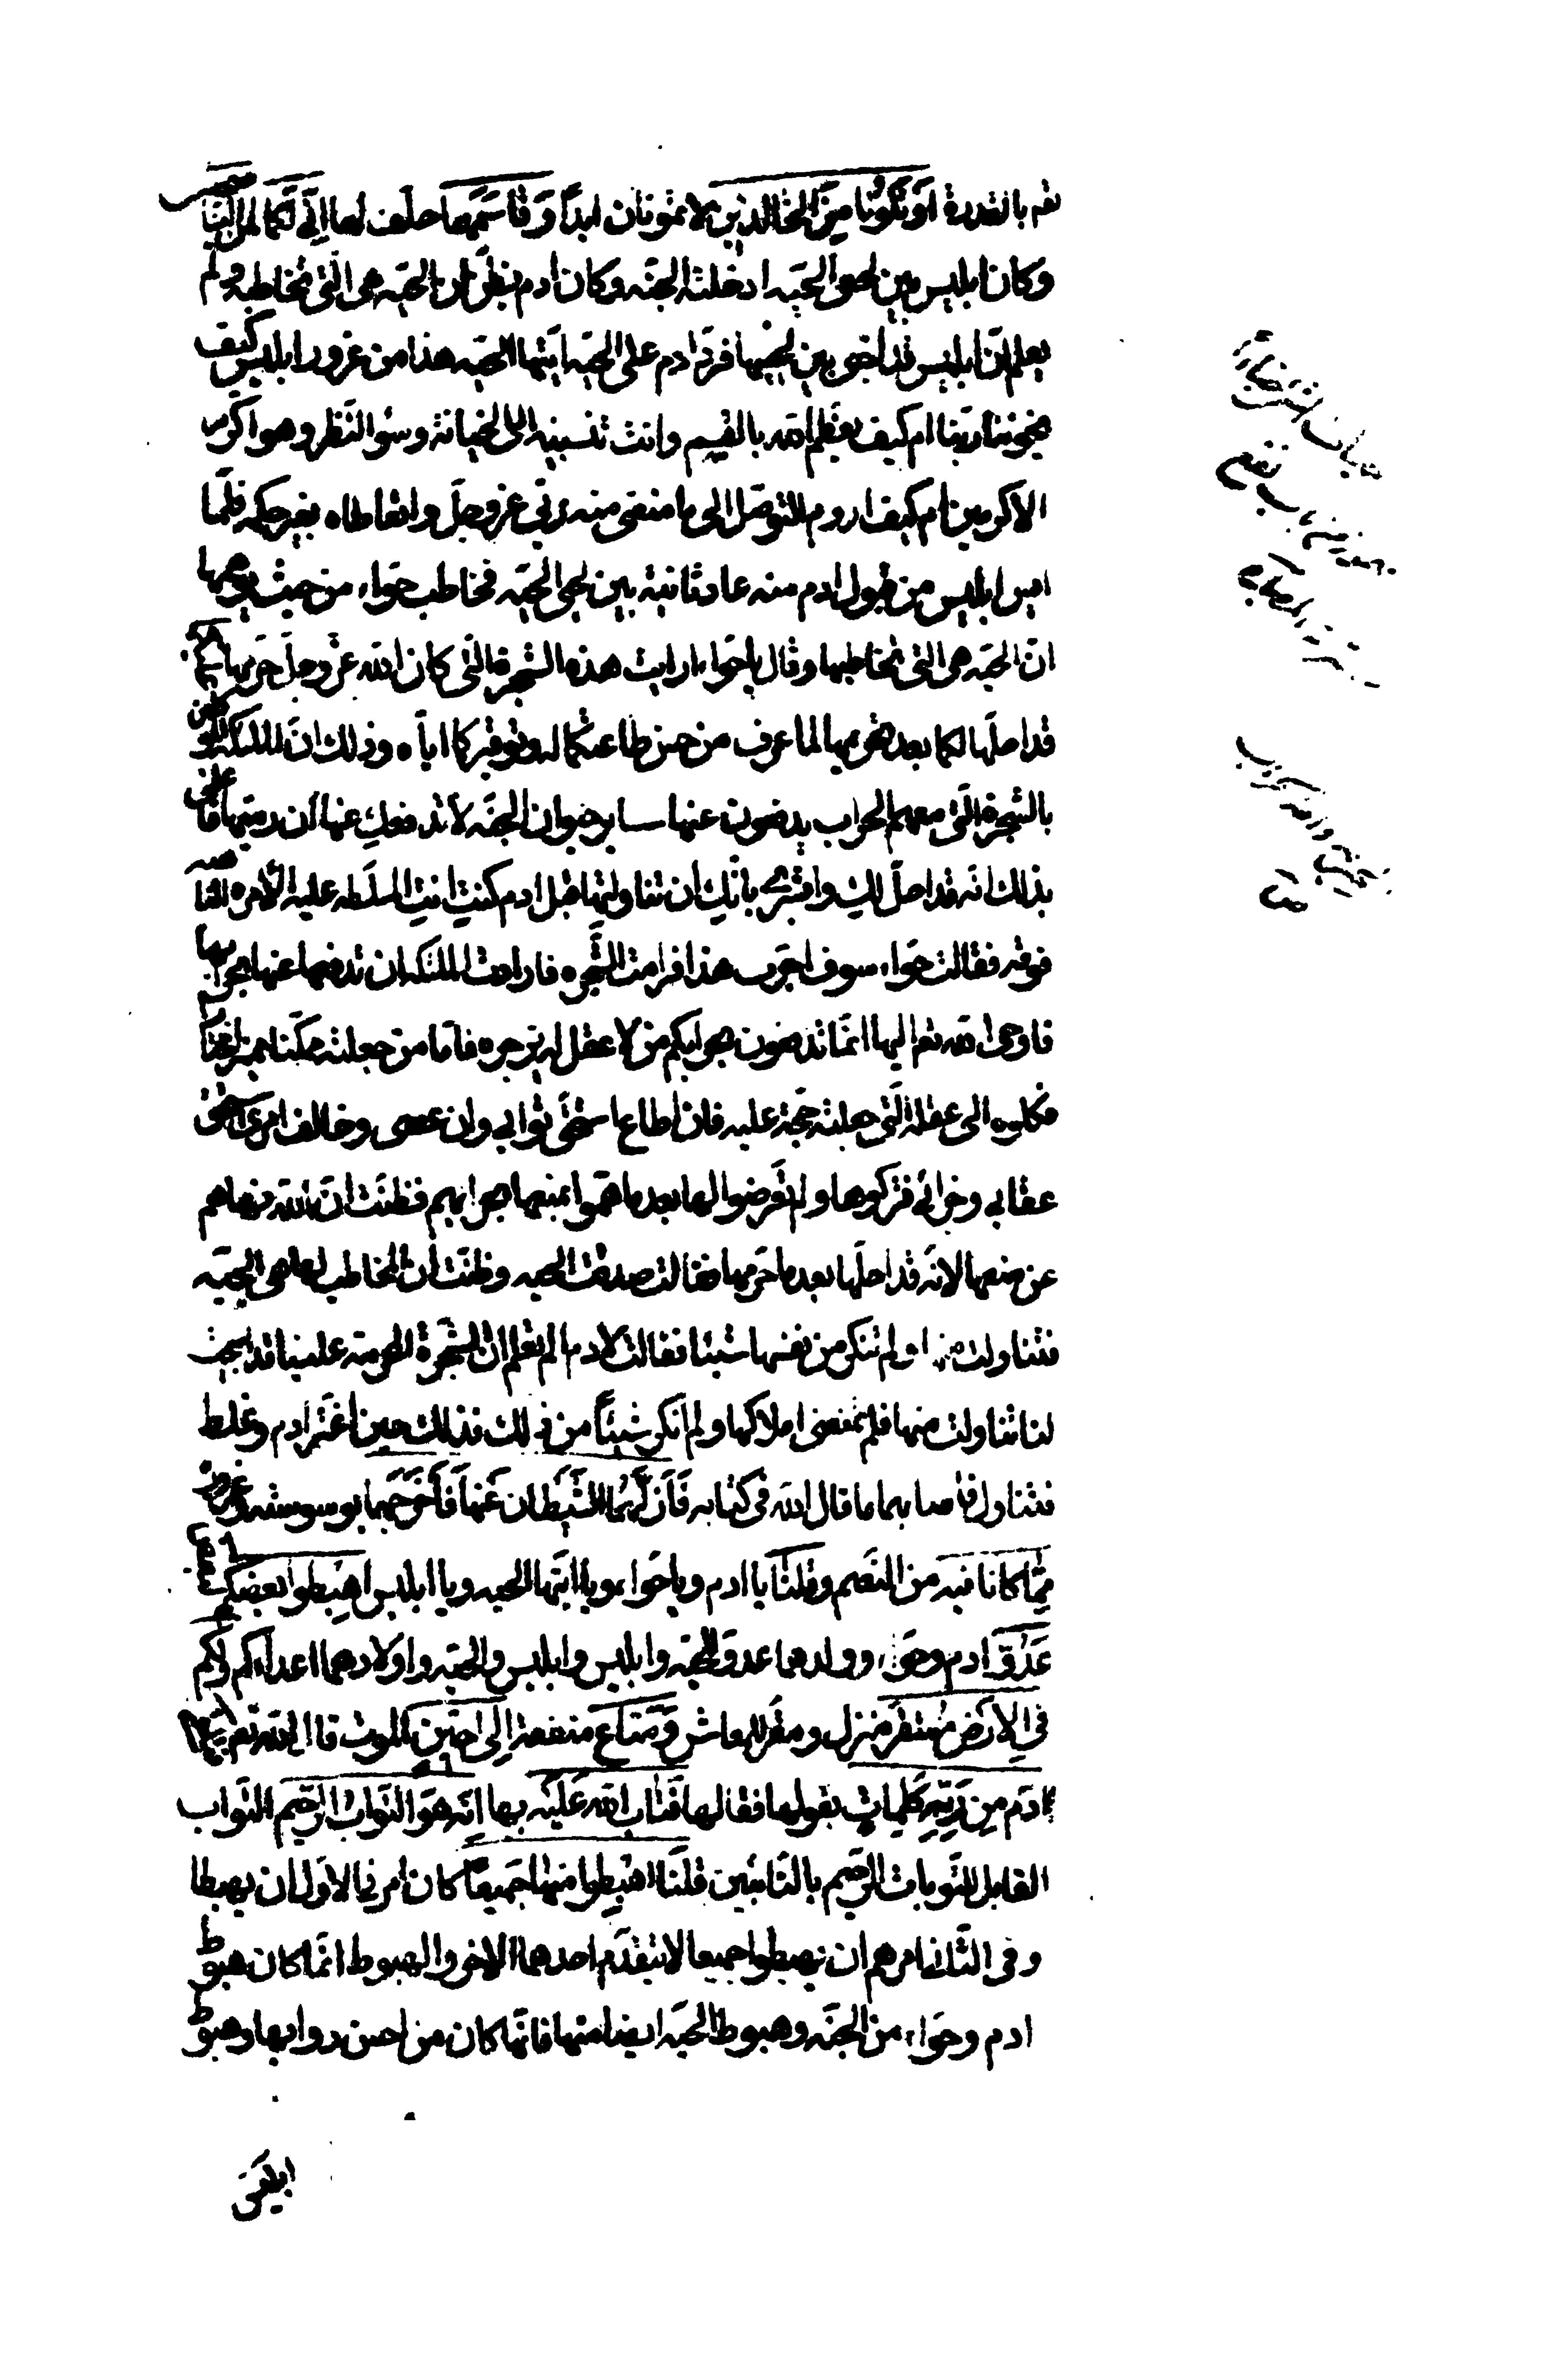 تعم بالقدرة او تكونا من الخالدين لا تموتان ابدا وقاسمهما حلف لهما اني لكما لمن الناصحين
وكان ابليس بين لحيى الحيه ادخلته الجنه وكان ادم يظن ان الحيه هى التى تخاطبه ولم
يعلم ان ابليس قد اختبى بين لحييها فرد ادم على الحيه ايتها الحيه هذا من غرور ابليس كيف
يخوننا ربنا ام كيف تعظم الله بالقسم وانت تنسبينه الى الخيانة وسؤ النظر وهو اكرم
الاكرمين ام كيف اروم التوصل الى ما منعنى منه ربى عز وجل واتعاطاه بغير حكمه فلما
ايس ابليس من قبول ادم منه عاد ثانية بين لحيى الحيه فخاطب حواء من حيث يوهمها
ان الحيه هى التى تخاطبها وقال يا حواء ارايت هذه الشجرة التى كان الله عز وجل حرمها عليكما
قد احلها لكما بعد تحريمها لما عرف من حسن طاعتكما له وتوقيركما اياه وذلك ان الملئكه الموكلين
بالشجرة التى معهم الحراب يدفعون عنها ساير حيوان الجنه لا تدفعك عنها ان رمتها فاعلمى
بذلك انه قد احل لك وابشرى بانك ان تناولتها قبل ادم كنت انت المسلطه عليه الامره الناهيه
فوقه فقالت حواء سوف اجرب هذا فرامت الشجره فارادت الملئكه ان تدفعها عنها بحرابها
فاوحى الله تعم اليها انما تدفعون بحرابكم من لا عقل له يزجره فاما من جعلته ممكنا مميزا مختارا
فكلوه الى عقله الذى جعلته حجة عليه فان اطاع استحق ثوابى وان عصى وخالف امرى استحق
عقابى وجزائى فتركوها ولم يتعرضوا لها بعد ما هموا بمنعها بحرابهم فظنت ان الله نهاهم
عن منعها لانه قد احلها بعد ما حرمها فقالت صدقت الحيه وظنت ان المخاطب لها هى الحيه
فتناولت منها ولم تنكر من نفسها شيئا فقالت لادم الم تعلم ان الشجرة المحرمة علينا قد ابيحت
لنا تناولت منها فلم تمنعنى املاكها ولم انكر شيئا من ذلك فذلك حين اغتر ادم وغلط
فتناول فاصابهما ما قال الله فى كتابه فازلهما الشيطان عنها فاخرجهما بوسوسته وغروره
مما كانا فيه من النعيم وقلنا يا ادم ويا حواء ويا ايتها الحيه ويا ابليس اهبطوا بعضكم لبعض
عدو ادم وحوا وولدهما عدو للحيه وابليس وابليس والحيه واولادهما اعداءكم ولكم
فى الارض مستقر منزل ومقر للمعاش ومتاع منفعة الى حين الموت قال الله تعم فتلقى
ادم من ربه كلمات يقولها فقالها فتاب الله عليه بها انه هو التواب الرحيم التواب
القابل للتوبات الرحيم بالتائبين قلنا اهبطوا منها جميعا كان امر فى الاول ان يهبطا
وفى الثانى امرهم ان يهبطوا جميعا لا يتقدم احدهما الاخر والهبوط انما كان هبوط
ادم وحواء من الجنه وهبوط الحيه ايضا منها فانها كان من احسن دوابها وهبوط
ابليس